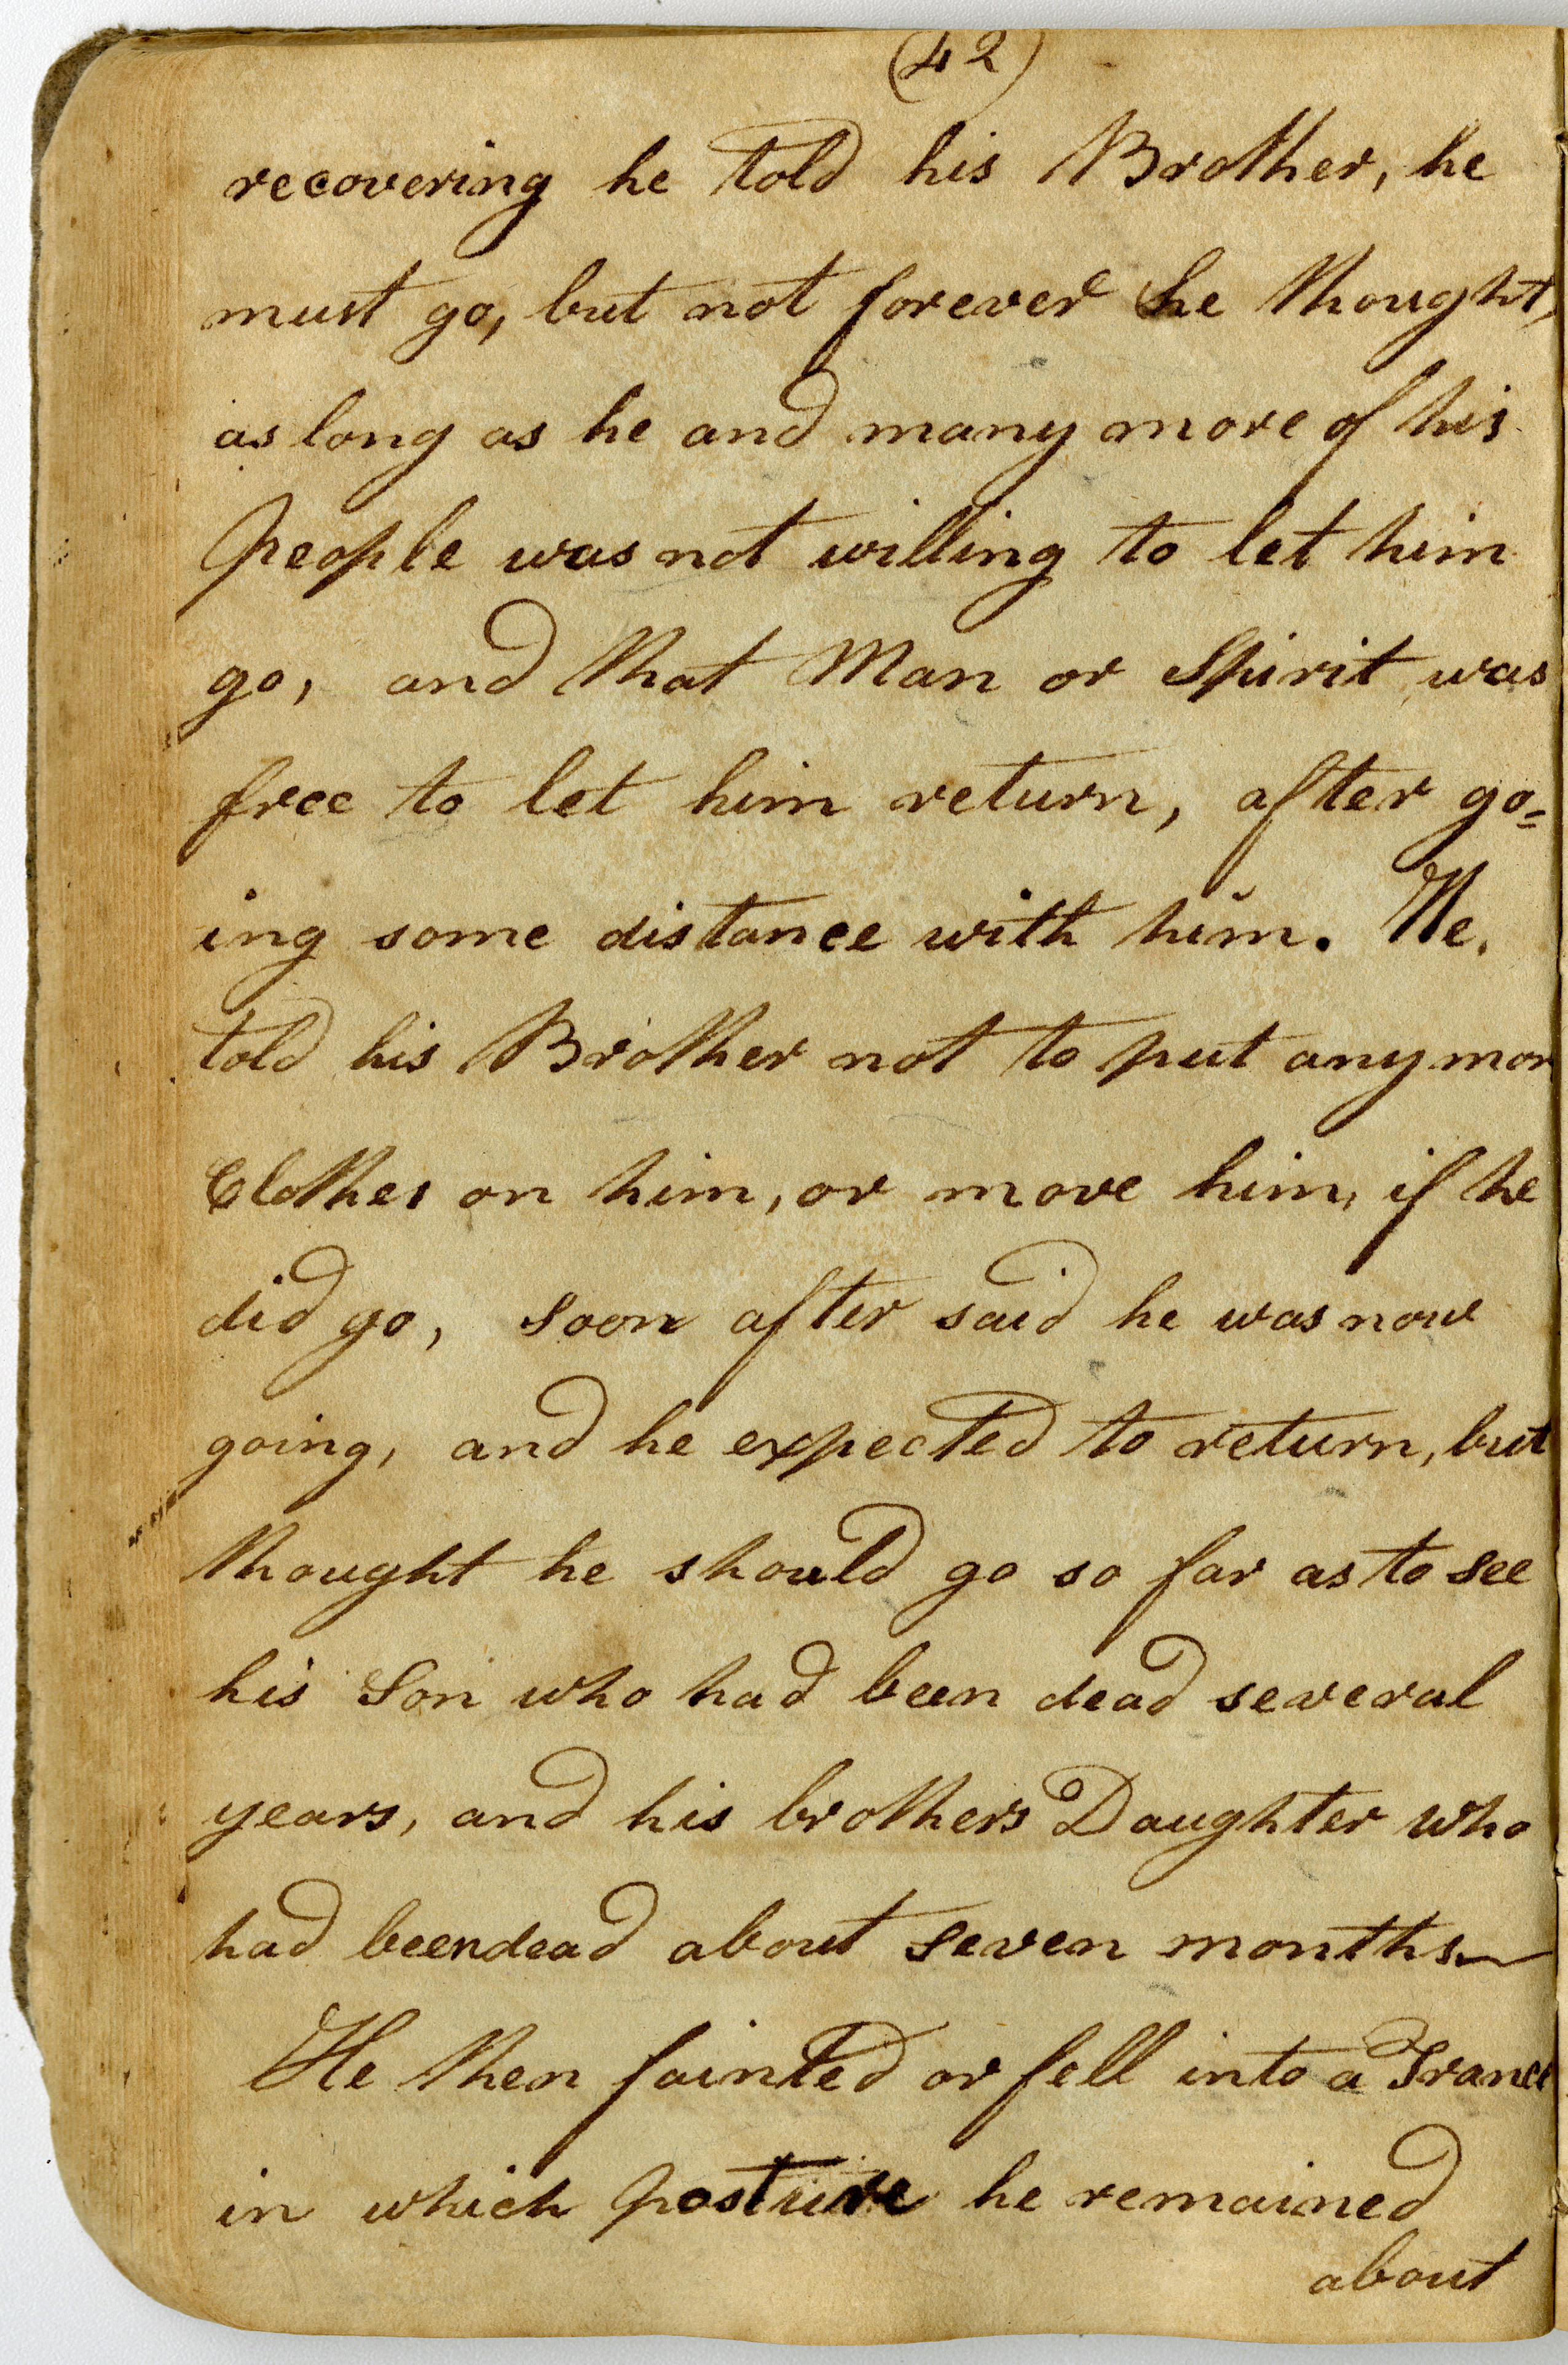 (42)
recovering he told his Brother, he
must go, but not forever he thought,
as long as he and many more of his
People was not willing to let him
go, and that Man or Spirit was
free to let him return, after go=
ing some distance with him. He
told his Brother not to put any mor
Clothes on him, or move him, if he
did go, soon after said he was now
going, and he expected to return, but
thought he should go so far as to see
his Son who had been dead several
years, and his brothers Daughter who
had been dead about seven months
He then fainted or fell into a Trance
in which posture he remained
about